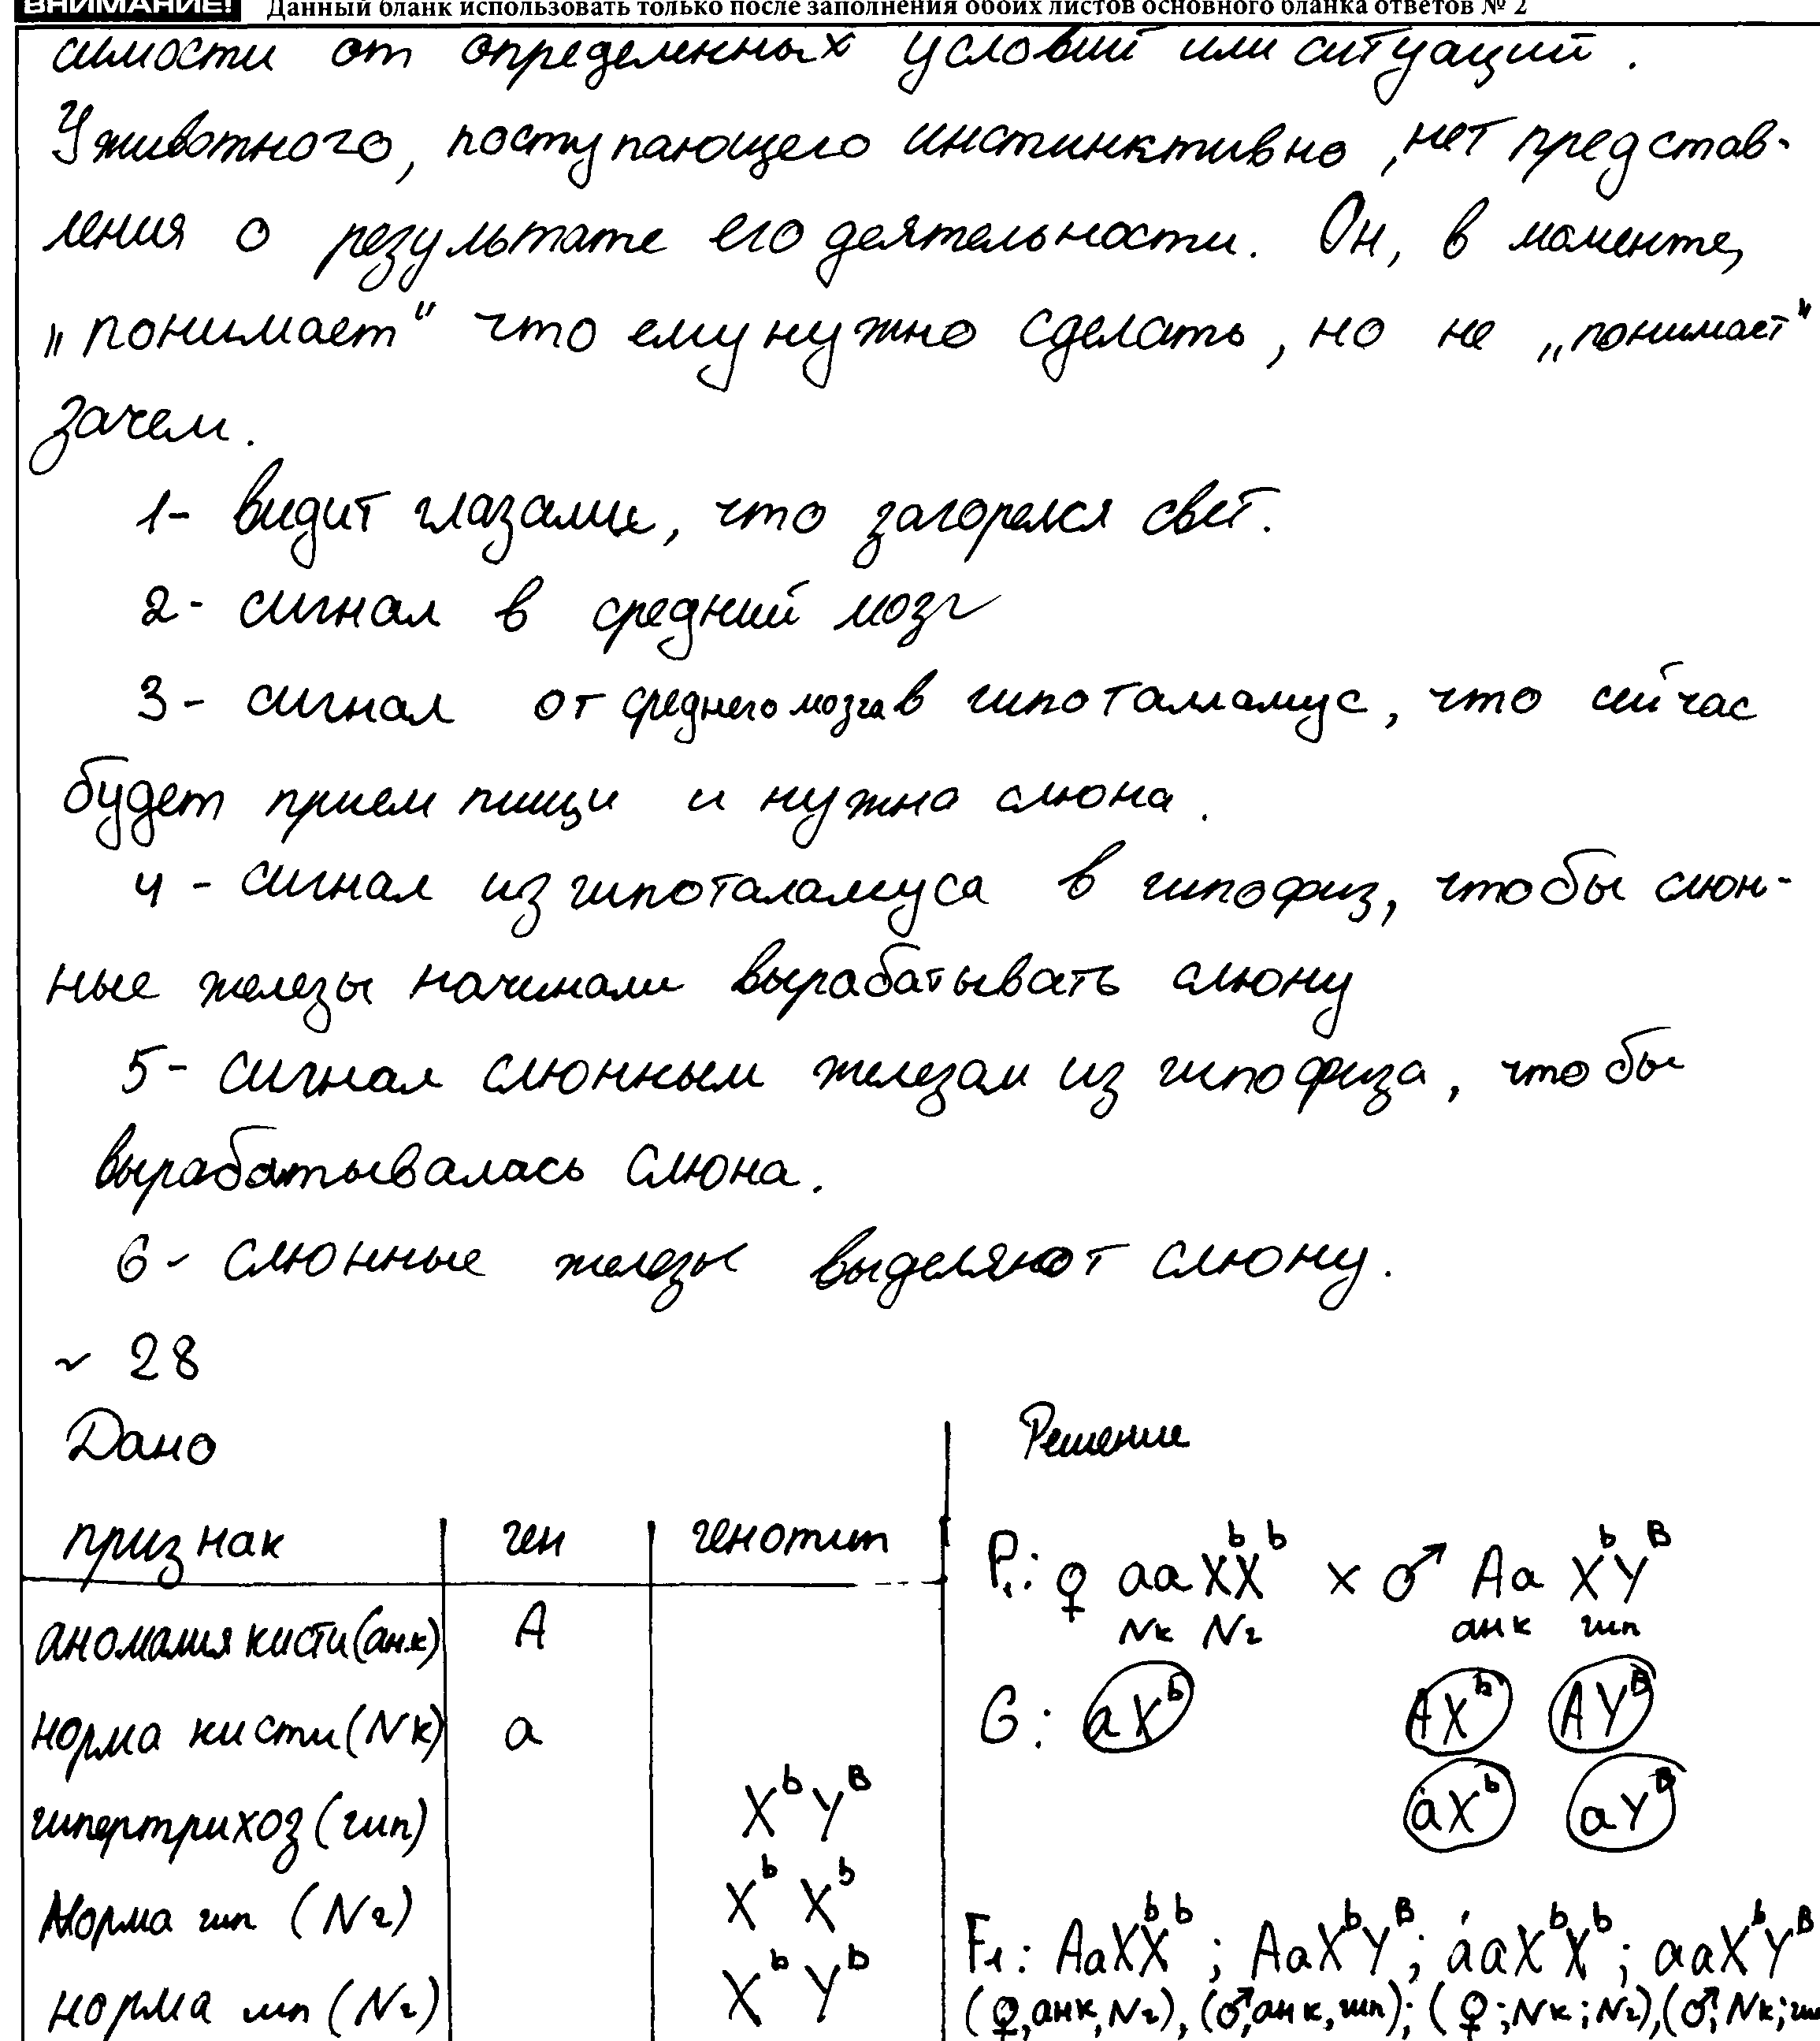 ВНИМАНИЕ! Данный бланк использовать только после заполнения обоих листов основного бланка ответов № 2
симости от определенных условий или ситуаций.
У животного, поступающего инстинктивно, нет представ-
ления о результате его деятельности. Он, в моменте,
„понимает" что ему нужно сделать, но не „понимает"
зачем.
1- видит глазами, что загорелся свет.
2- сигнал в средний мозг
3- сигнал от среднего мозга в гипоталламус, что сейчас
будет прием пищи и нужна слюна.
4- сигнал из гипоталамуса в гипофиз, чтобы слюн-
ные железы начинали вырабатывать слюну
5- сигнал слюнным железам из гипофиза, чтобы
вырабатывалась слюна.
6- слюнные железы выделяют слюну.
~ 28
Дано Решение
признак ген генотип
P₁: ♀ aaXᵇXᵇ × ♂ Aa XᵇYᴮ
Nк Nг анк гип
аномалия кисти (ан.к) A
G: aXᵇ AXᵇ AYᴮ
норма кисти (Nк) a
aXᵇ aYᴮ
гипертрихоз (гип) XᵇYᴮ
Норма гип (Nг) XᵇXᵇ
F₁: AaXᵇXᵇ; AaXᵇYᴮ; aaXᵇXᵇ; aaXᵇYᴮ
норма гип (Nг) XᵇYᵇ
(♀, анк, Nг), (♂, анк, гип); (♀; Nк; Nг), (♂; Nк; ги